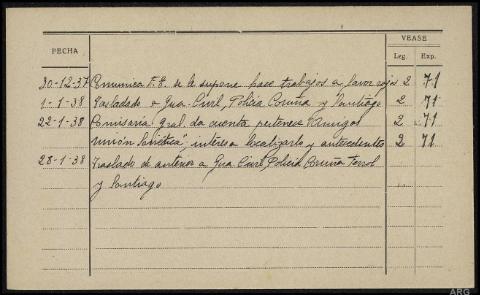 VEASE
FECHA Leg. Exp.
30-12-37 Comunica F.E. se le supone hace trabajos a favor rojos 2 71
1-1-38 Trasladado a Gua. Civil, Policia Coruña y Santiago 2 71
22-1-38 Comisaria Gral. da cuenta pertenece "Amigos 2 71
Unión Soviética", interesa localizarlo y antecedentes 2 71
28-1-38 Traslado de anterior a Gua Civil, Policia Coruña Ferrol
y Santiago
ARG